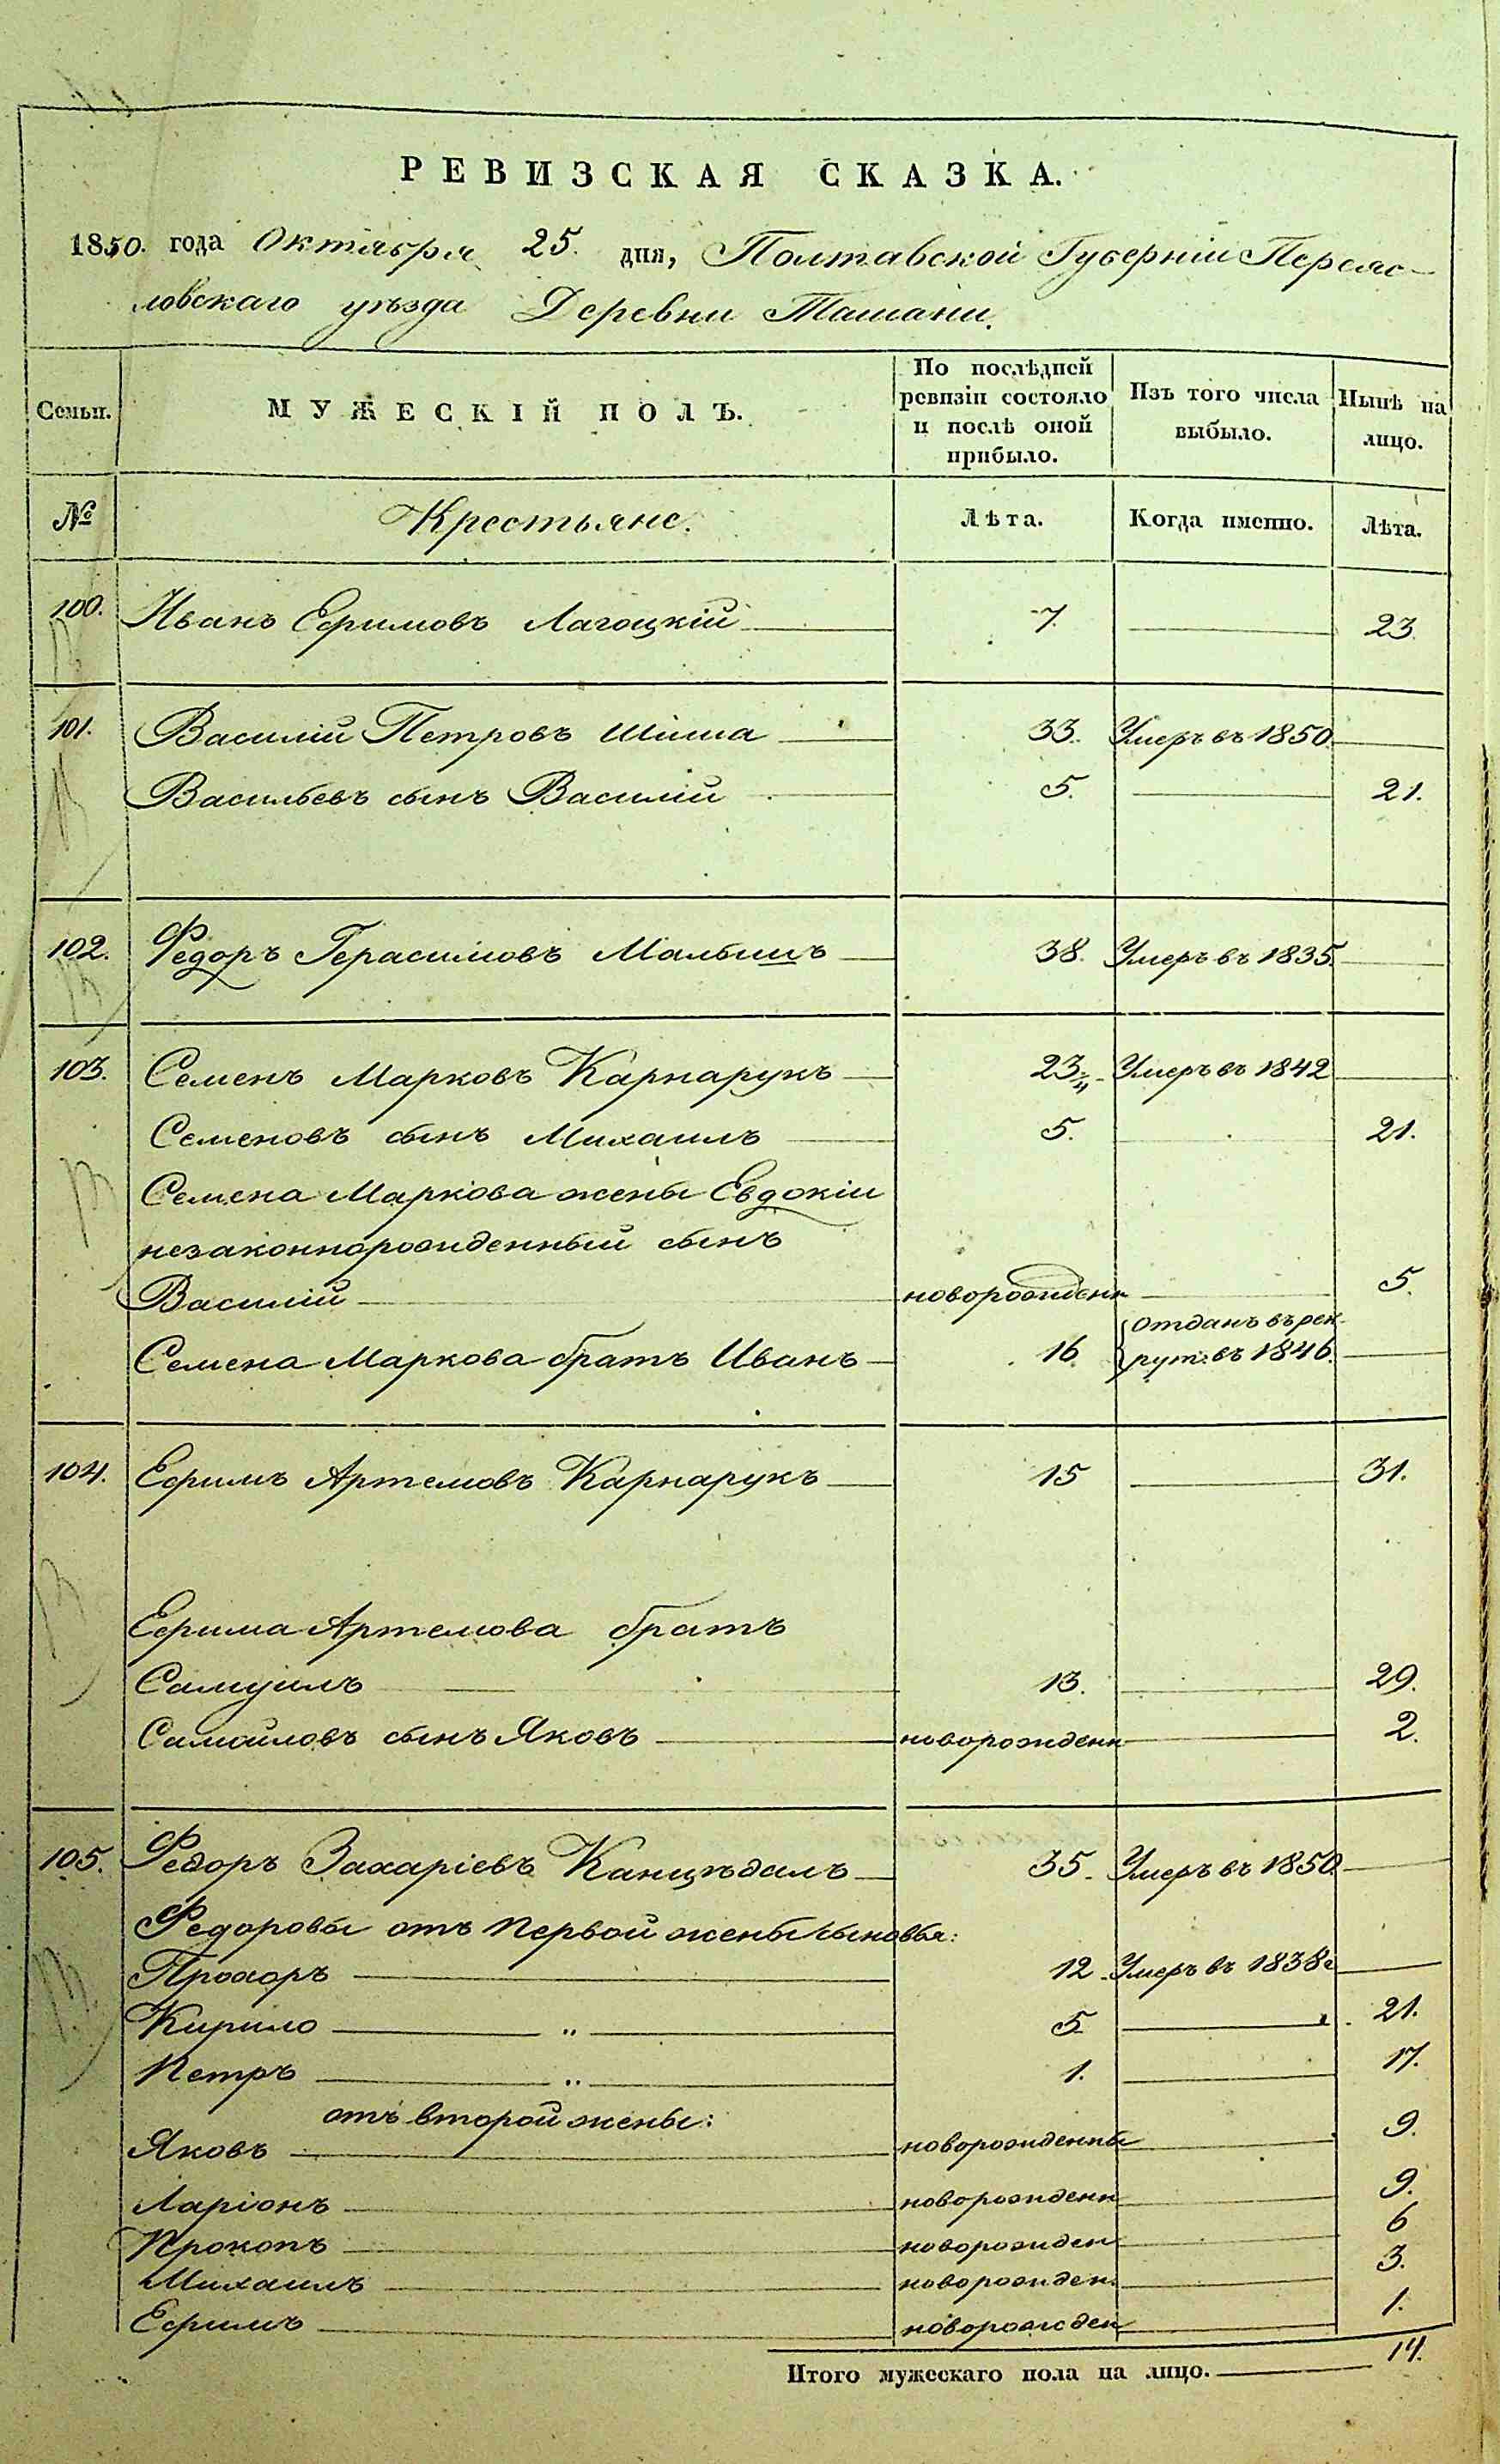 РЕВИЗСКАЯ СКАЗКА.
1850. года Октября 25. дня, Полтавской Губерніи Переяс-
ловскаго уѣзда Деревни Ташани.
Семьи. МУЖЕСКІЙ ПОЛЪ. По послѣдней ревизіи состояло и послѣ оной прибыло. Изъ того числа выбыло. Нынѣ на лицо.
№ Крестьяне. Лѣта. Когда именно. Лѣта.
100. Иванъ Ефимовъ Лагоцкій 7. 23.
101. Василій Петровъ Шиша 33. Умеръ въ 1850.
Васильевъ сынъ Василій 5. 21.
102. Федоръ Герасимовъ Малышъ 38. Умеръ въ 1835.
103. Семенъ Марковъ Карнарукъ 23. Умеръ въ 1842
Семеновъ сынъ Михаилъ 5. 21.
Семена Маркова жены Евдокіи
незаконнорожденный сынъ
Василій новорожденн 5.
Семена Маркова братъ Иванъ 16. отданъ въ рек-
рут: въ 1846.
104. Ефимъ Артемовъ Карнарукъ 15 31.
Ефима Артемова братъ
Самуилъ 13. 29.
Самойловъ сынъ Яковъ новорожденн 2.
105. Федоръ Захаріевъ Канцѣдалъ 35. Умеръ въ 1850
Федоровы отъ первой жены сыновья:
Прохоръ 12. Умеръ въ 1838г
Кирило „ 5. 21.
Петръ „ 1. 17.
отъ второй жены:
Яковъ новорожденны 9.
Ларіонъ новорожденн 9.
Прокопъ новорожден 6
Михаилъ новорожден. 3.
Ефимъ новорожден 1.
Итого мужескаго пола на лицо. 14.